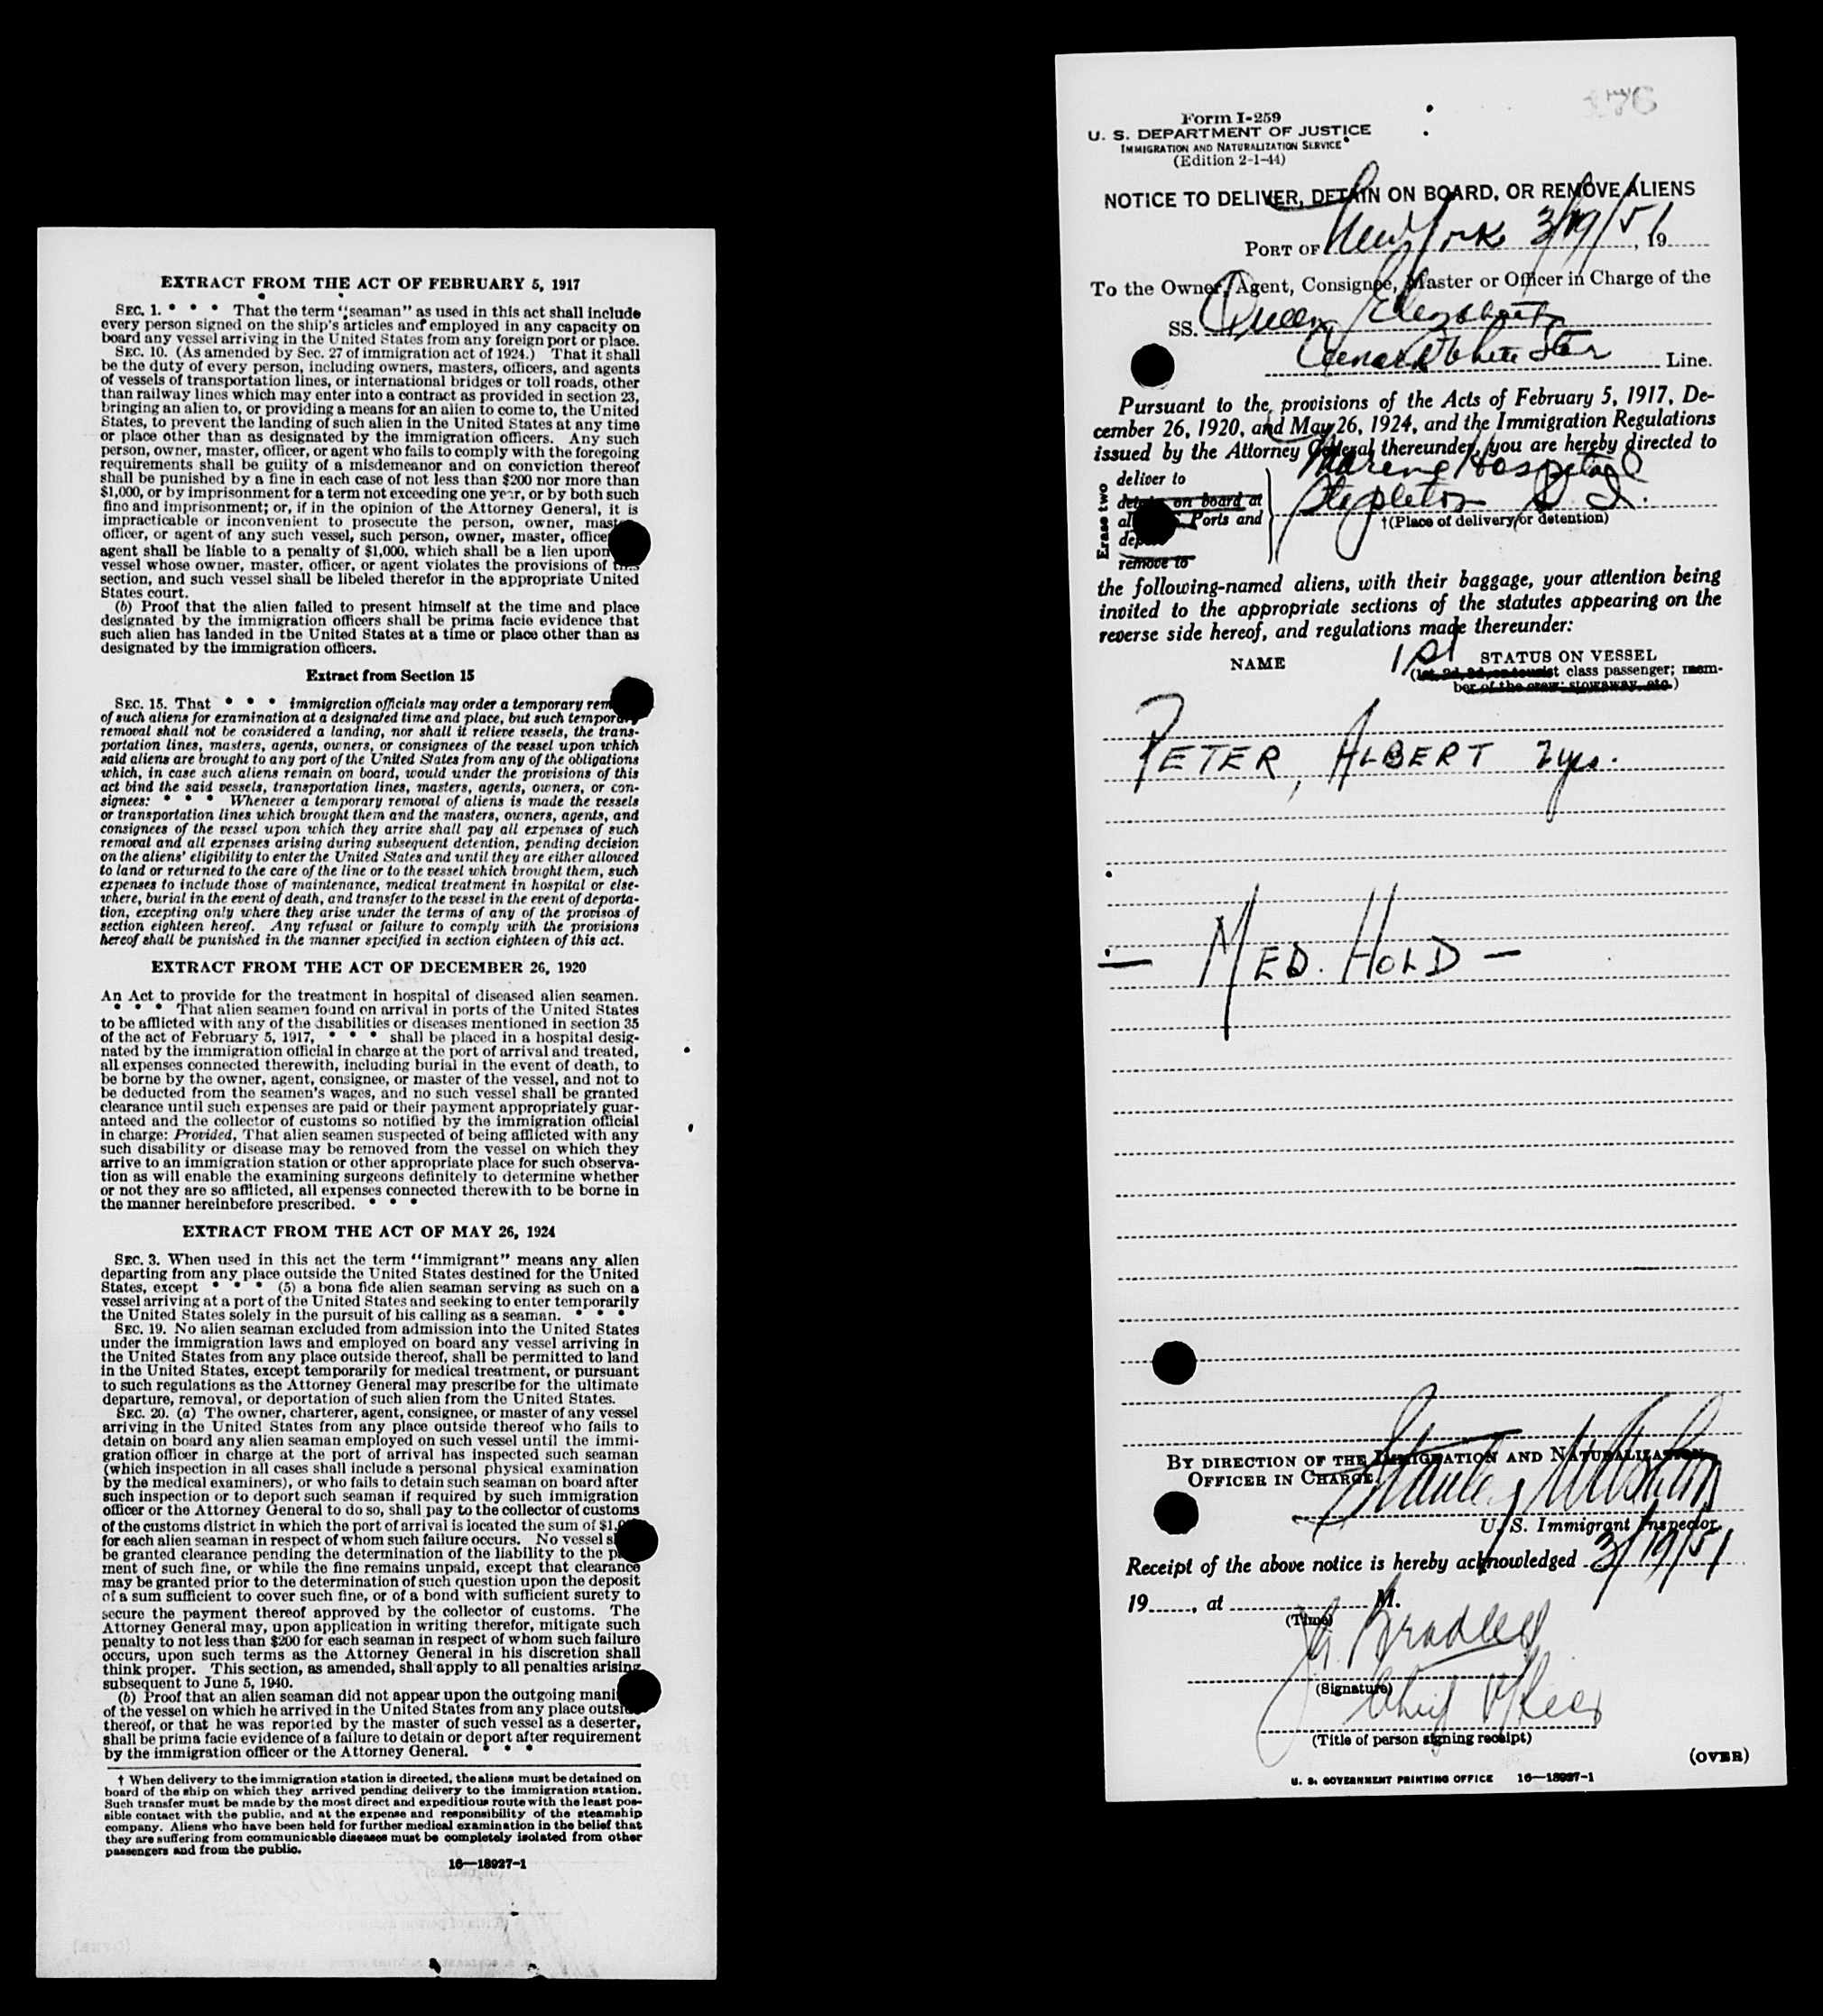 EXTRACT FROM THE ACT OF FEBRUARY 5, 1917
SEC. 1. * * * That the term "seaman" as used in this act shall include
every person signed on the ship's articles and employed in any capacity on
board any vessel arriving in the United States from any foreign port or place.
SEC. 10. (As amended by Sec. 27 of immigration act of 1924.) That it shall
be the duty of every person, including owners, masters, officers, and agents
of vessels of transportation lines, or international bridges or toll roads, other
than railway lines which may enter into a contract as provided in section 23,
bringing an alien to, or providing a means for an alien to come to, the United
States, to prevent the landing of such alien in the United States at any time
or place other than as designated by the immigration officers. Any such
person, owner, master, officer, or agent who fails to comply with the foregoing
requirements shall be guilty of a misdemeanor and on conviction thereof
shall be punished by a fine in each case of not less than $200 nor more than
$1,000, or by imprisonment for a term not exceeding one year, or by both such
fine and imprisonment; or, if in the opinion of the Attorney General, it is
impracticable or inconvenient to prosecute the person, owner, master,
officer, or agent of any such vessel, such person, owner, master, officer
agent shall be liable to a penalty of $1,000, which shall be a lien upon
vessel whose owner, master, officer, or agent violates the provisions of this
section, and such vessel shall be libeled therefor in the appropriate United
States court.
(b) Proof that the alien failed to present himself at the time and place
designated by the immigration officers shall be prima facie evidence that
such alien has landed in the United States at a time or place other than as
designated by the immigration officers.
Extract from Section 15
SEC. 15. That * * * immigration officials may order a temporary rem
of such aliens for examination at a designated time and place, but such temporary
removal shall not be considered a landing, nor shall it relieve vessels, the trans-
portation lines, masters, agents, owners, or consignees of the vessel upon which
said aliens are brought to any port of the United States from any of the obligations
which, in case such aliens remain on board, would under the provisions of this
act bind the said vessels, transportation lines, masters, agents, owners, or con-
signees: * * * Whenever a temporary removal of aliens is made the vessels
or transportation lines which brought them and the masters, owners, agents, and
consignees of the vessel upon which they arrive shall pay all expenses of such
removal and all expenses arising during subsequent detention, pending decision
on the aliens' eligibility to enter the United States and until they are either allowed
to land or returned to the care of the line or to the vessel which brought them, such
expenses to include those of maintenance, medical treatment in hospital or else-
where, burial in the event of death, and transfer to the vessel in the event of deporta-
tion, excepting only where they arise under the terms of any of the provisos of
section eighteen hereof. Any refusal or failure to comply with the provisions
hereof shall be punished in the manner specified in section eighteen of this act.
EXTRACT FROM THE ACT OF DECEMBER 26, 1920
An Act to provide for the treatment in hospital of diseased alien seamen.
* * * That alien seamen found on arrival in ports of the United States
to be afflicted with any of the disabilities or diseases mentioned in section 35
of the act of February 5, 1917, * * * shall be placed in a hospital desig-
nated by the immigration official in charge at the port of arrival and treated,
all expenses connected therewith, including burial in the event of death, to
be borne by the owner, agent, consignee, or master of the vessel, and not to
be deducted from the seamen's wages, and no such vessel shall be granted
clearance until such expenses are paid or their payment appropriately guar-
anteed and the collector of customs so notified by the immigration official
in charge: Provided, That alien seamen suspected of being afflicted with any
such disability or disease may be removed from the vessel on which they
arrive to an immigration station or other appropriate place for such observa-
tion as will enable the examining surgeons definitely to determine whether
or not they are so afflicted, all expenses connected therewith to be borne in
the manner hereinbefore prescribed. * * *
EXTRACT FROM THE ACT OF MAY 26, 1924
SEC. 3. When used in this act the term "immigrant" means any alien
departing from any place outside the United States destined for the United
States, except * * * (5) a bona fide alien seaman serving as such on a
vessel arriving at a port of the United States and seeking to enter temporarily
the United States solely in the pursuit of his calling as a seaman. * * *
SEC. 19. No alien seaman excluded from admission into the United States
under the immigration laws and employed on board any vessel arriving in
the United States from any place outside thereof, shall be permitted to land
in the United States, except temporarily for medical treatment, or pursuant
to such regulations as the Attorney General may prescribe for the ultimate
departure, removal, or deportation of such alien from the United States.
SEC. 20. (a) The owner, charterer, agent, consignee, or master of any vessel
arriving in the United States from any place outside thereof who fails to
detain on board any alien seaman employed on such vessel until the immi-
gration officer in charge at the port of arrival has inspected such seaman
(which inspection in all cases shall include a personal physical examination
by the medical examiners), or who fails to detain such seaman on board after
such inspection or to deport such seaman if required by such immigration
officer or the Attorney General to do so, shall pay to the collector of customs
of the customs district in which the port of arrival is located the sum of $1,
for each alien seaman in respect of whom such failure occurs. No vessel s
be granted clearance pending the determination of the liability to the p
ment of such fine, or while the fine remains unpaid, except that clearance
may be granted prior to the determination of such question upon the deposit
of a sum sufficient to cover such fine, or of a bond with sufficient surety to
secure the payment thereof approved by the collector of customs. The
Attorney General may, upon application in writing therefor, mitigate such
penalty to not less than $200 for each seaman in respect of whom such failure
occurs, upon such terms as the Attorney General in his discretion shall
think proper. This section, as amended, shall apply to all penalties arising
subsequent to June 5, 1940.
(b) Proof that an alien seaman did not appear upon the outgoing mani
of the vessel on which he arrived in the United States from any place outside
thereof, or that he was reported by the master of such vessel as a deserter,
shall be prima facie evidence of a failure to detain or deport after requirement
by the immigration officer or the Attorney General. * * *
† When delivery to the immigration station is directed, the aliens must be detained on
board of the ship on which they arrived pending delivery to the immigration station.
Such transfer must be made by the most direct and expeditious route with the least pos-
sible contact with the public, and at the expense and responsibility of the steamship
company. Aliens who have been held for further medical examination in the belief that
they are suffering from communicable diseases must be completely isolated from other
passengers and from the public.
16—18927-1
Form I-259
U. S. DEPARTMENT OF JUSTICE
IMMIGRATION AND NATURALIZATION SERVICE
(Edition 2-1-44)
NOTICE TO DELIVER, DETAIN ON BOARD, OR REMOVE ALIENS
PORT OF New York 3/19/51, 19
To the Owner, Agent, Consignee, Master or Officer in Charge of the
SS. Queen Elizabeth
Cunard White Star Line.
Pursuant to the provisions of the Acts of February 5, 1917, De-
cember 26, 1920, and May 26, 1924, and the Immigration Regulations
issued by the Attorney General thereunder, you are hereby directed to
Marine Hospital
Erase two
deliver to
detain on board at
al Ports and
dep
remove to
Stapleton S. I.
†(Place of delivery or detention)
the following-named aliens, with their baggage, your attention being
invited to the appropriate sections of the statutes appearing on the
reverse side hereof, and regulations made thereunder:
NAME
1st STATUS ON VESSEL
(1st, 2d, 3d, or tourist class passenger; mem-
ber of the crew; stowaway, etc.)
PETER, ALBERT 2yrs.
— MED. HOLD —
BY DIRECTION OF THE IMMIGRATION AND NATURALIZATION
OFFICER IN CHARGE.
Stanley
U. S. Immigrant Inspector.
Receipt of the above notice is hereby acknowledged 3/19/51
19, at M.
(Time)
Bradley
(Signature)
Chief Officer
(Title of person signing receipt)
(OVER)
U. S. GOVERNMENT PRINTING OFFICE 16—18927-1